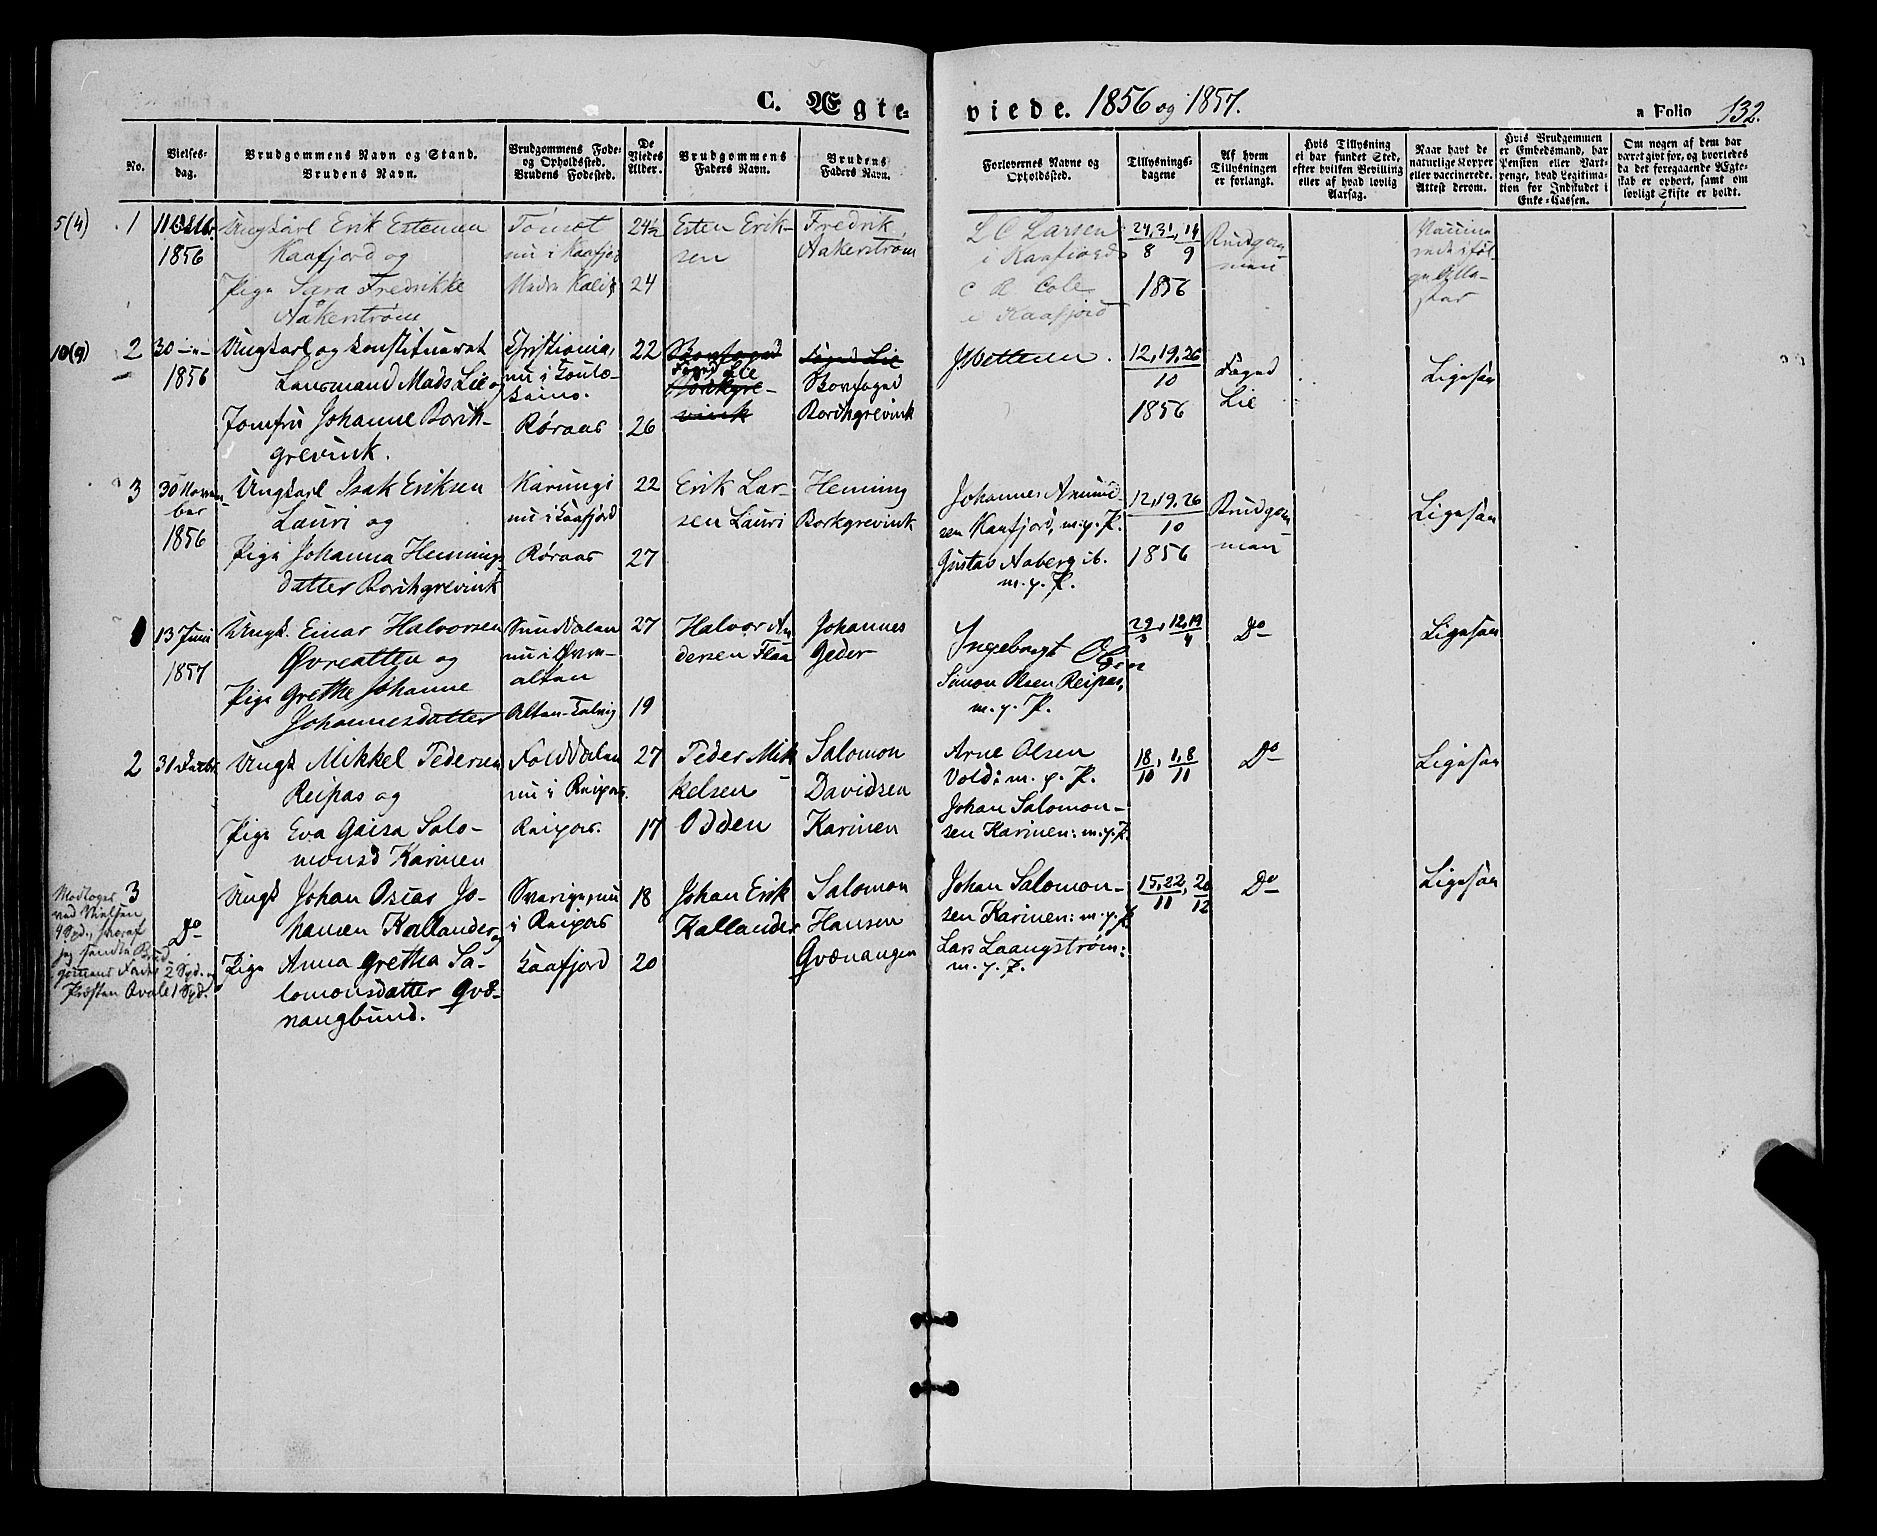 C. Ægte-
viede. 1856 og 1857.
a Folio 132.
No.
Vielses-
dag.
Brudgommens Navn og Stand.
Brudens Navn.
Brudgommens Føde-
og Opholdssted.
Brudens Fødested.
De
Viedes
Alder.
Brudgommens
Faders Navn.
Brudens
Faders Navn.
Forlovernes Navne og
Opholdssted.
Tillysnings-
dagene
Af hvem
Tillysningen
er forlangt.
Hvis Tillysning
ei har fundet Sted,
efter hvilken Bevilling
eller af hvad lovlig
Aarsag.
Naar havt de
naturlige Kopper
eller vaccinerede.
Attest derom.
Hvis Brudgommen
er Embedsmand, har
Pension eller Vart-
penge, hvad Legitima-
tion for Indskudet i
Enke-Cassen.
Om nogen af dem har
været givt før, og hvorledes
da det foregaaende Ægte-
skab er ophørt, samt om
lovligt Skifte er holdt.
5(4) 1
1856
Ungkarl Erik Estensen
Kaafjord og
Pige Sara Fredrikke
Aakerstrøm
nu i Kaafjord
24½
24
Esten Erik-
sen
Fredrik
Aakerstrøm
L C Larsen
i Kaafjord
C R Cole
i Kaafjord
24,31, 14
8 9
1856
Brudgom
men
10(9) 2
30
1856
Ungkarl og konstitueret
Lensmand Mads Lie og
Jomfru Johanne Borch-
grevink.
Christiania,
nu i Kouto-
keino.
Røraas
22
26
Foged Lie
Borchgre-
vink
Foged Lie
Borchgrevink
12,19,26
10
1856
Foged
Lie
Ligesaa
3
30 Novem-
ber
1856
Ungkarl Isak Eriksen
Lauri og
Pige Johanna Hennings-
datter Borchgrevink
Karungi
nu i Kaafjord
Røraas
22
27
Erik Lar-
sen Lauri
Henning
Borkgrevink
Johannes Amund-
sen Kaafjord, m. p. P.
Gustav Aaberg ib.
m. p. P.
12,19,26
10
1856
Brudgom
man
Ligesaa
1
13 Juni
1857
Ungk. Einar Halvorsen
Øvrealten og
Pige Grethe Johanne
Johannesdatter
Sunddalen
nu i Øvre-
alten
Alten-Talvig
27
19
Halvor An
dersen Flaa
Johannes
Geder
Ingebrigt Olsen
Simon Olsen Reipas,
m. p. P.
29, 12,19
3 4
Do
Ligesaa
2
Ungk Mikkel Pedersen
Reipas og
Pige Eva Gaisa Salo-
monsd Karinen
Folddalen
nu i Reipas.
Reipas.
27
17
Peder Mik
kelsen
Odden
Salomon
Davidsen
Karinen
Arne Olsen
Vold: m. p. P.
Johan Salomon-
sen Karinen: m. p. P.
18, 1,8
10 11
Do
Ligesaa
3
Do
Ungk Johan Oscar Jo-
hansen Kallander og
Pige Anna Gretha Sa-
lomonsdatter Qvæ-
nangbund.
Sverige, nu
i Reipas
Kaafjord
18
20
Johan Erik
Kallander
Salomon
Hansen
Qvænangen
Johan Salomon-
sen Karinen: m. p. P.
Lars Laangstrøm:
m. p. P.
15,22, 20
11 12
Do
Ligesaa
Modtoges
ved Vielsen